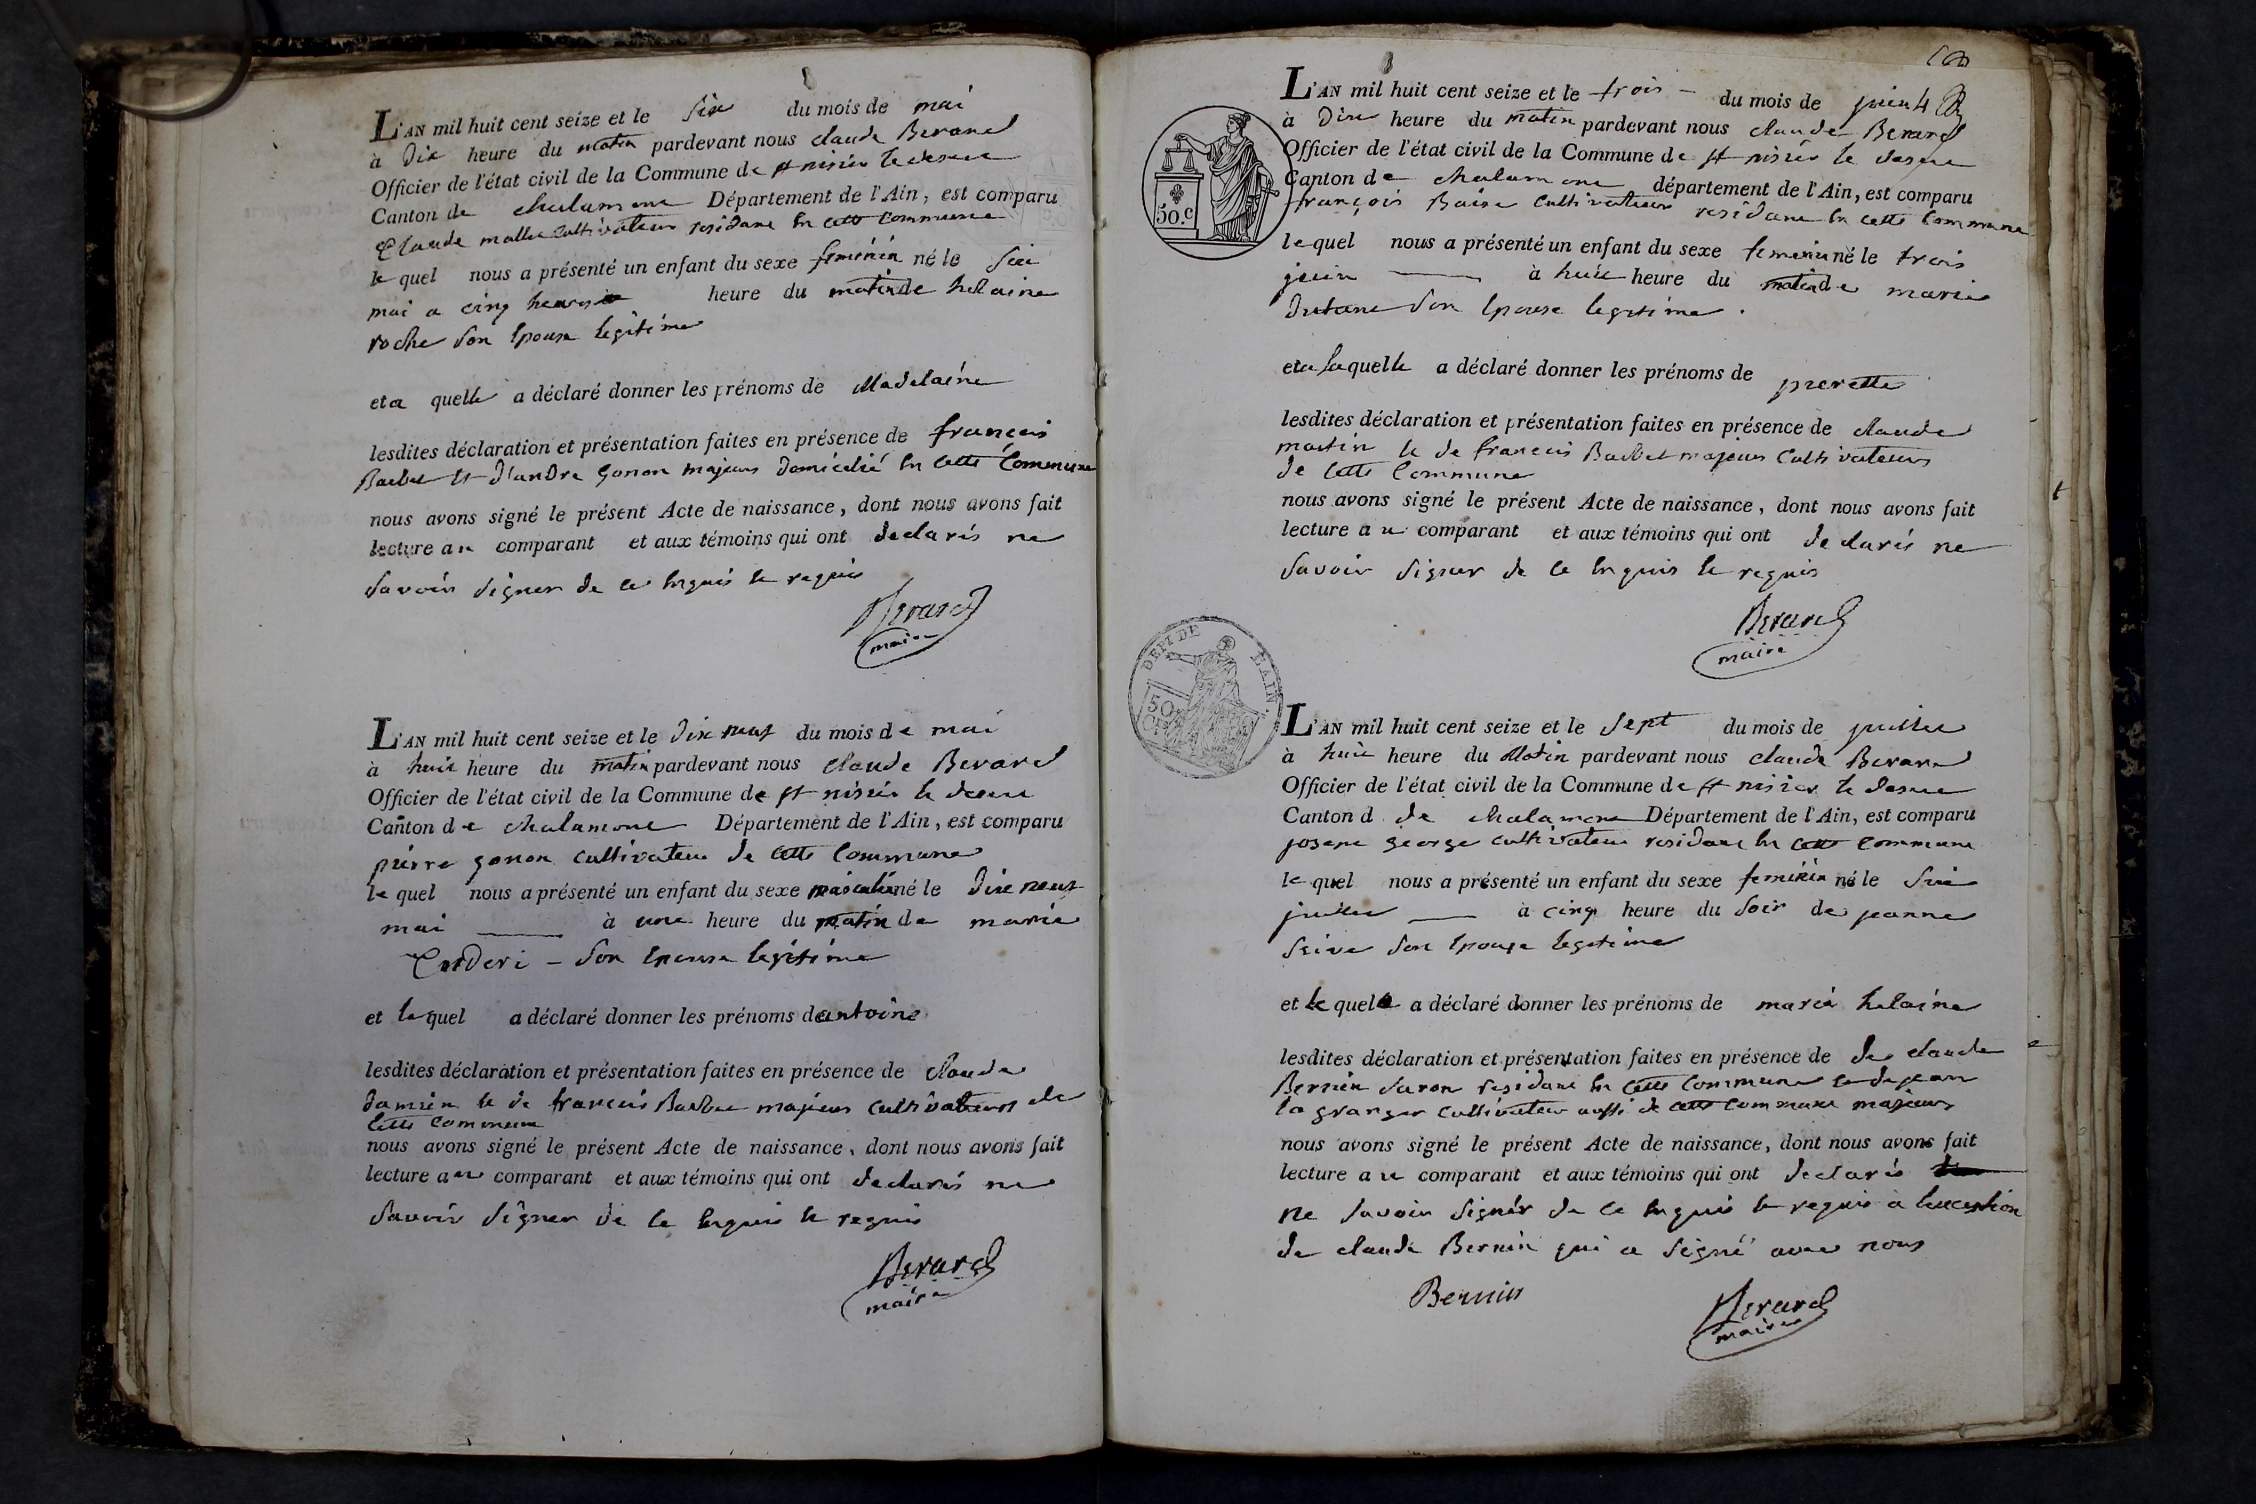 L'AN mil huit cent seize et le six du mois de mai
à Dix heure du matin pardevant nous claude Berard
Officier de l'état civil de la Commune de st nisier le desert
Canton de chalamont Département de l'Ain, est comparu
Claude mallet cultivateur residant en cette commune
le quel nous a présenté un enfant du sexe feminin né le six
mai a cinq heures heure du matin de helaine
roche son epouse legitime
et a quelle a déclaré donner les prénoms de Madelaine
lesdites déclaration et présentation faites en présence de francois
Barbet et d'andre gonon majeurs domicilié en cette Commune
nous avons signé le présent Acte de naissance, dont nous avons fait
lecture au comparant et aux témoins qui ont declarés ne
savoir signer de ce enquis et requis
Berard
maire
L'AN mil huit cent seize et le dix neuf du mois de mai
à huit heure du matin pardevant nous claude Berard
Officier de l'état civil de la Commune de st nisier le desert
Canton de chalamont Département de l'Ain, est comparu
pierre gonon cultivateur de cette Commune
le quel nous a présenté un enfant du sexe masculin né le dix neuf
mai à une heure du matin de marie
son epouse legitime
et le quel a déclaré donner les prénoms de antoine
lesdites déclaration et présentation faites en présence de claude
damien et de francois Barbet majeurs cultivateurs de
cette commune
nous avons signé le présent Acte de naissance, dont nous avons fait
lecture au comparant et aux témoins qui ont declarés ne
savoir signer de ce enquis et requis
Berard
maire
L'AN mil huit cent seize et le trois du mois de juin
à Dix heure du matin pardevant nous claude Berard
Officier de l'état civil de la Commune de st nisier le desert
Canton de chalamont département de l'Ain, est comparu
françois cultivateur residant en cette Commune
50.c
lequel nous a présenté un enfant du sexe feminin né le trois
juin à huit heure du matin de marie
son epouse legitime.
et a laquelle a déclaré donner les prénoms de pierette
lesdites déclaration et présentation faites en présence de claude
martin et de francois Barbet majeurs cultivateurs
de cette Commune
nous avons signé le présent Acte de naissance, dont nous avons fait
lecture au comparant et aux témoins qui ont declarés ne
savoir signer de ce enquis et requis
Berard
maire
DEPT DE L'AIN.
50
L'AN mil huit cent seize et le sept du mois de juillet
à huit heure du Matin pardevant nous claude Berard
Officier de l'état civil de la Commune de st nisier le desert
Canton d de chalamont Département de l'Ain, est comparu
george cultivateur residant en cette commune
le quel nous a présenté un enfant du sexe feminin né le six
juillet à cinq heure du soir de jeanne
seive son epouse legitime
et le quel a déclaré donner les prénoms de marie helaine
lesdites déclaration et présentation faites en présence de de claude
Bernin residant en cette commune et de jean
la granger cultivateur aussi de cette commune majeurs
nous avons signé le présent Acte de naissance, dont nous avons fait
lecture au comparant et aux témoins qui ont declarés
ne savoir signer de ce enquis et requis à lexception
de claude Bernin qui a signé avec nous
Bernin
Berard
maire